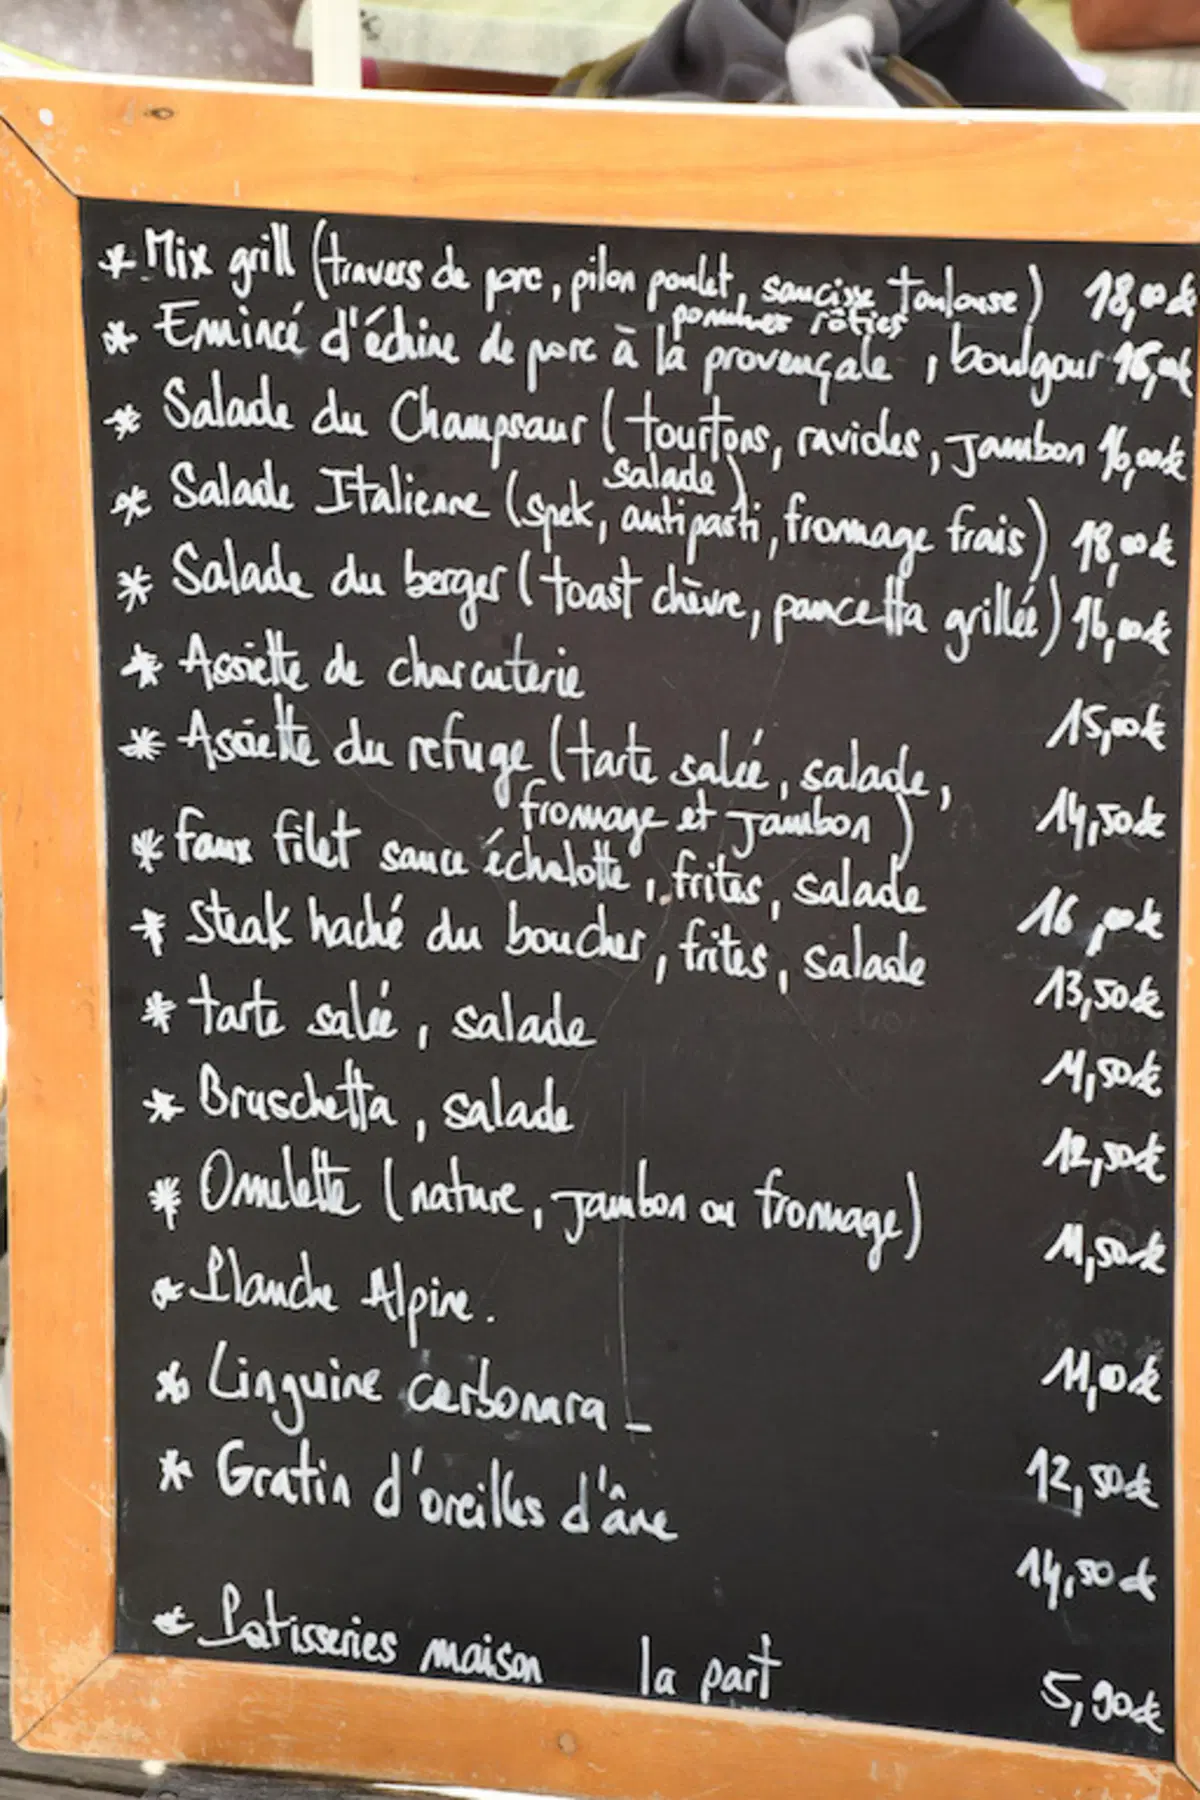 * Mix grill (travers de porc, pilon poulet, saucisse toulouse) 18,00€
pommes rôties
* Emincé d'échine de porc à la provençale, boulgour 16,00€
* Salade du Champsaur (tourtons, ravioles, jambon 16,00€
salade)
* Salade Italienne (spek, antipasti, fromage frais) 18,00€
* Salade du berger (toast chèvre, pancetta grillée) 16,00€
* Assiette de charcuterie 15,00€
* Assiette du refuge (tarte salée, salade,
fromage et jambon) 14,50€
* faux filet sauce échalotte, frites, salade 16,00€
* Steak haché du boucher, frites, salade 13,50€
* tarte salée, salade 11,50€
* Bruschetta, salade 12,50€
* Omelette (nature, jambon ou fromage) 11,50€
* Planche Alpine. 11,00€
* Linguine carbonara - 12,50€
* Gratin d'oreilles d'âne 14,50€
* Patisseries maison la part 5,90€